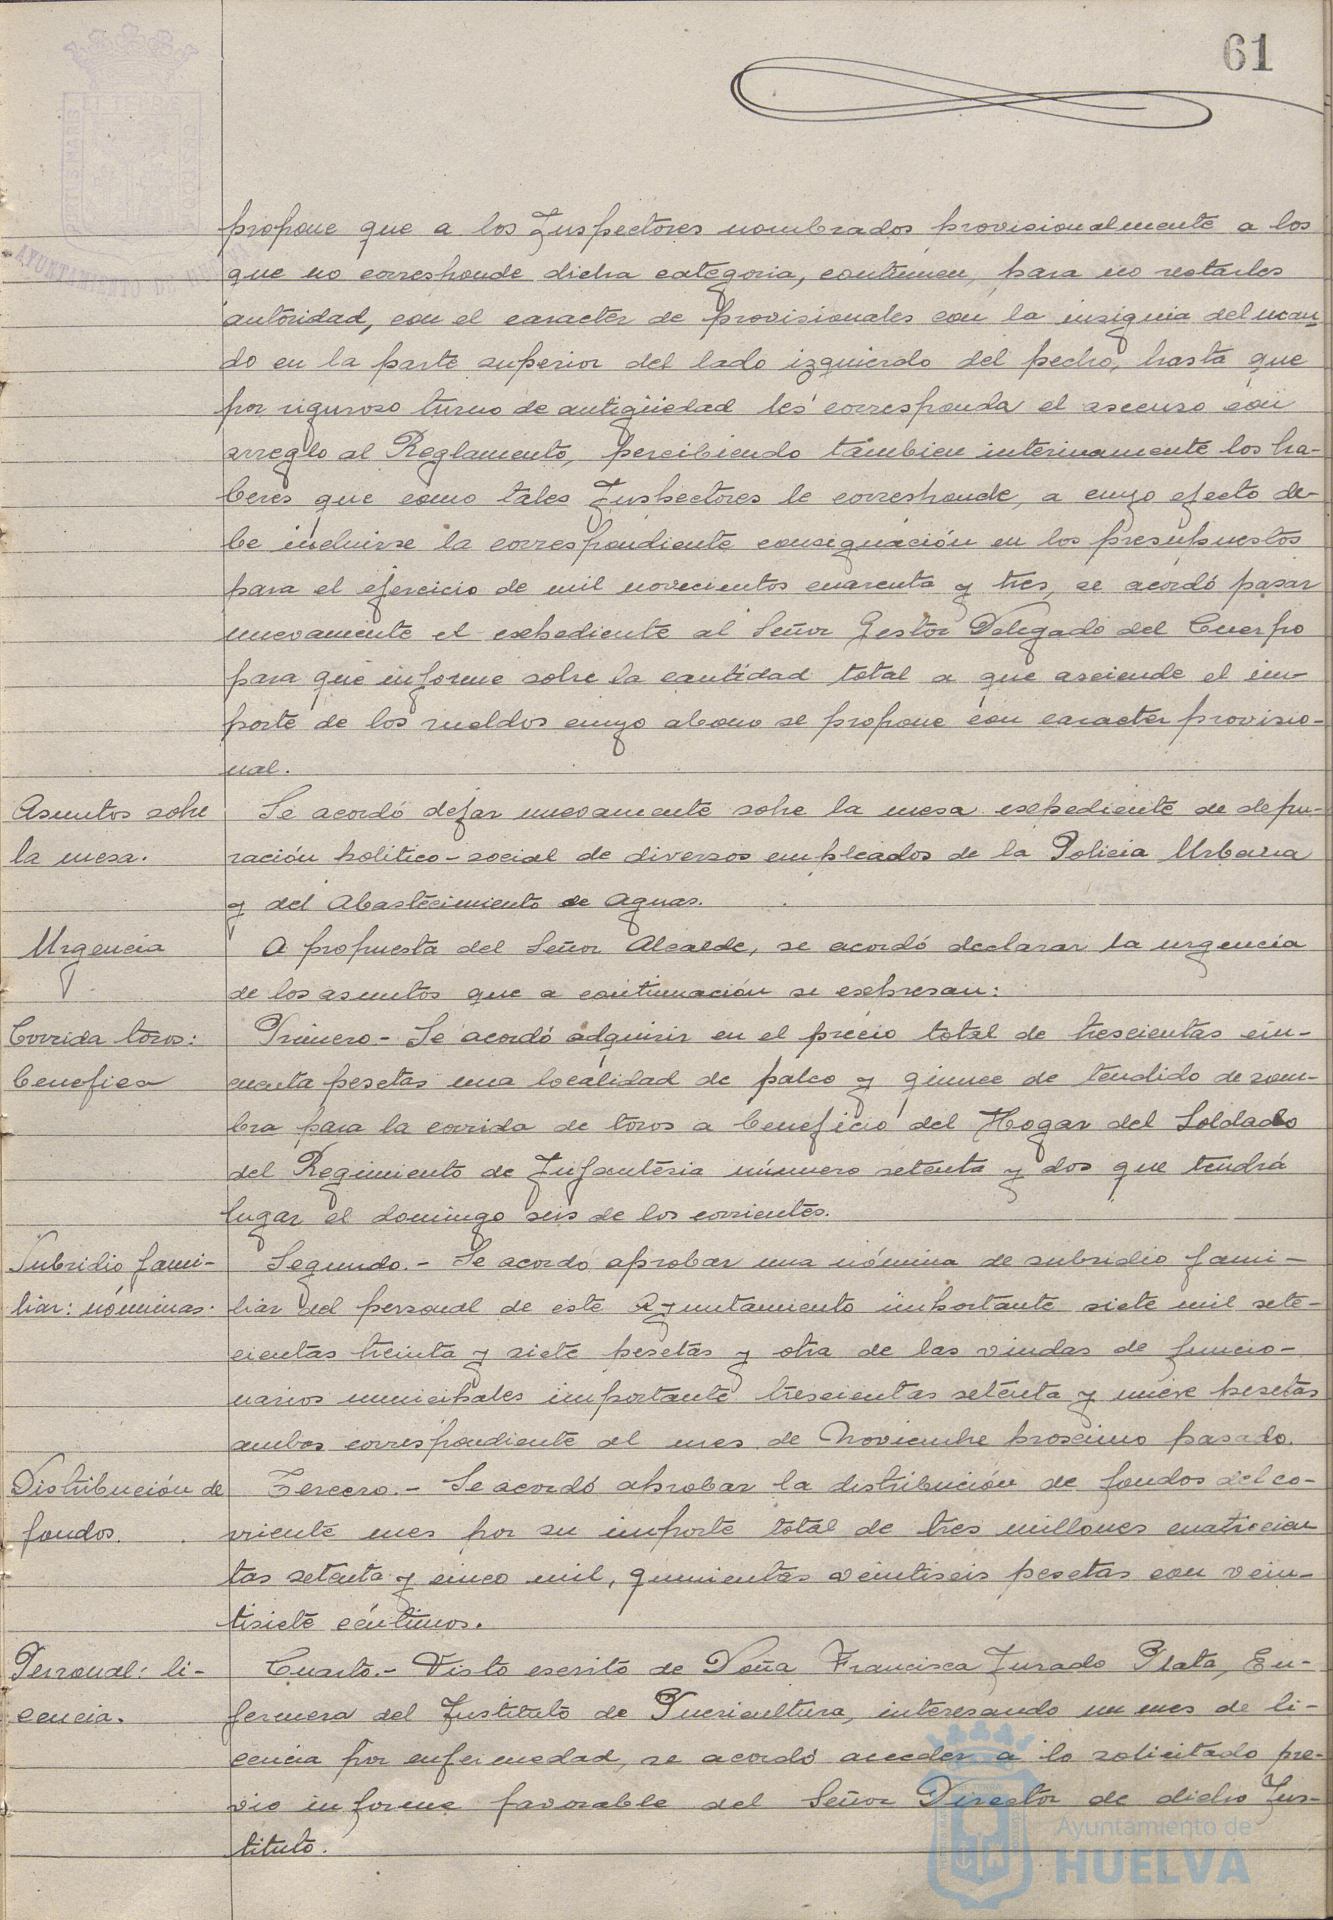 61
PORTUS MARIS
ET TERRÆ
CUSTODIA
AYUNTAMIENTO DE HUELVA
propone que a los Inspectores nombrados provisionalmente a los
que no corresponde dicha categoria, continuen, para no restarles
autoridad, con el caracter de provisionales con la insignia del man-
do en la parte superior del lado izquierdo del pecho, hasta que
por riguroso turno de antigüedad les corresponda el ascenso con
arreglo al Reglamento, percibiendo tambien interinamente los ha-
beres que como tales Inspectores le corresponde, a cuyo efecto de-
be incluirse la correspondiente consignación en los presupuestos
para el ejercicio de mil novecientos cuarenta y tres, se acordó pasar
nuevamente el expediente al Señor Gestor Delegado del Cuerpo
para que informe sobre la cantidad total a que asciende el im-
porte de los sueldos cuyo abono se propone con caracter provisio-
nal.
Asuntos sobre
la mesa.
Se acordó dejar nuevamente sobre la mesa expediente de depu-
ración politico-social de diversos empleados de la Policia Urbana
y del Abastecimiento de Aguas.
Urgencia
A propuesta del Señor Alcalde, se acordó declarar la urgencia
de los asuntos que a continuación se expresan:
Corrida toros:
benefica
Primero.- Se acordó adquirir en el precio total de trescientas cin-
cuenta pesetas una localidad de palco y quince de tendido de som-
bra para la corrida de toros a beneficio del Hogar del Soldado
del Regimiento de Infanteria número setenta y dos que tendrá
lugar el domingo seis de los corrientes.
Subsidio fami-
liar: nóminas.
Segundo.- Se acordó aprobar una nómina de subsidio fami-
liar del personal de este Ayuntamiento importante siete mil sete-
cientas treinta y siete pesetas y otra de las viudas de funcio-
narios municipales importante trescientas setenta y nueve pesetas
ambas correspondiente al mes de Noviembre proximo pasado.
Distribución de
fondos.
Tercero.- Se acordó aprobar la distribución de fondos del co-
rriente mes por su importe total de tres millones cuatrocien
tas setenta y cinco mil, quinientas veintiseis pesetas con vein-
tisiete céntimos.
Personal: li-
cencia.
Cuarto.- Visto escrito de Doña Francisca Jurado Plata, En-
fermera del Instituto de Puericultura, interesando un mes de li-
cencia por enfermedad, se acordó acceder a lo solicitado pre-
vio informe favorable del Señor Director de dicho Ins-
tituto.
Ayuntamiento de
HUELVA